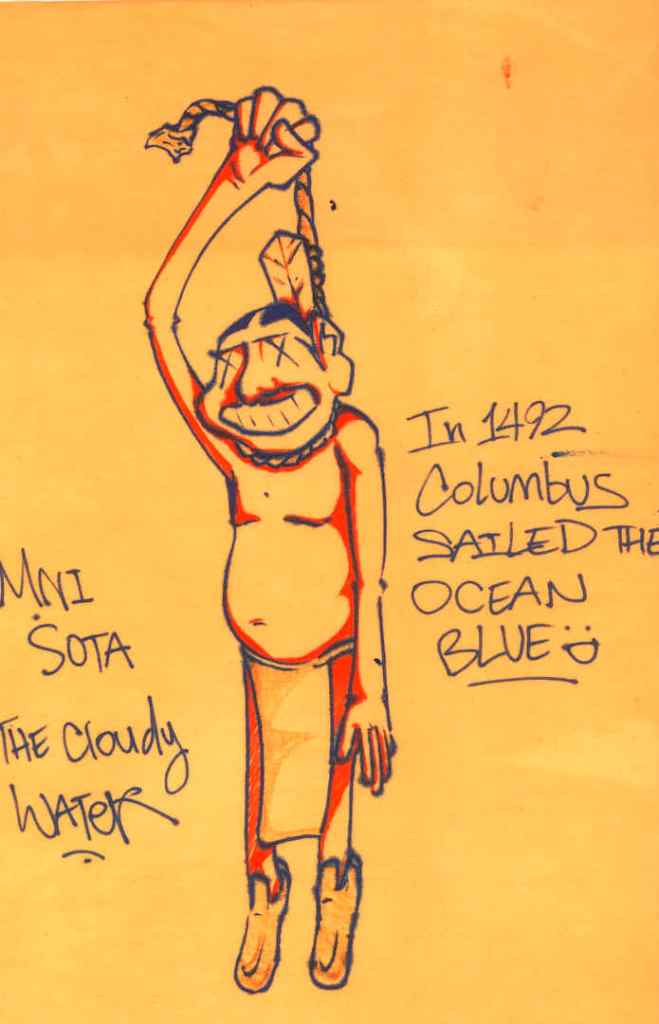 In 1492
Columbus
SAILED THE
OCEAN
BLUE
MNI
SOTA
THE Cloudy
WATER